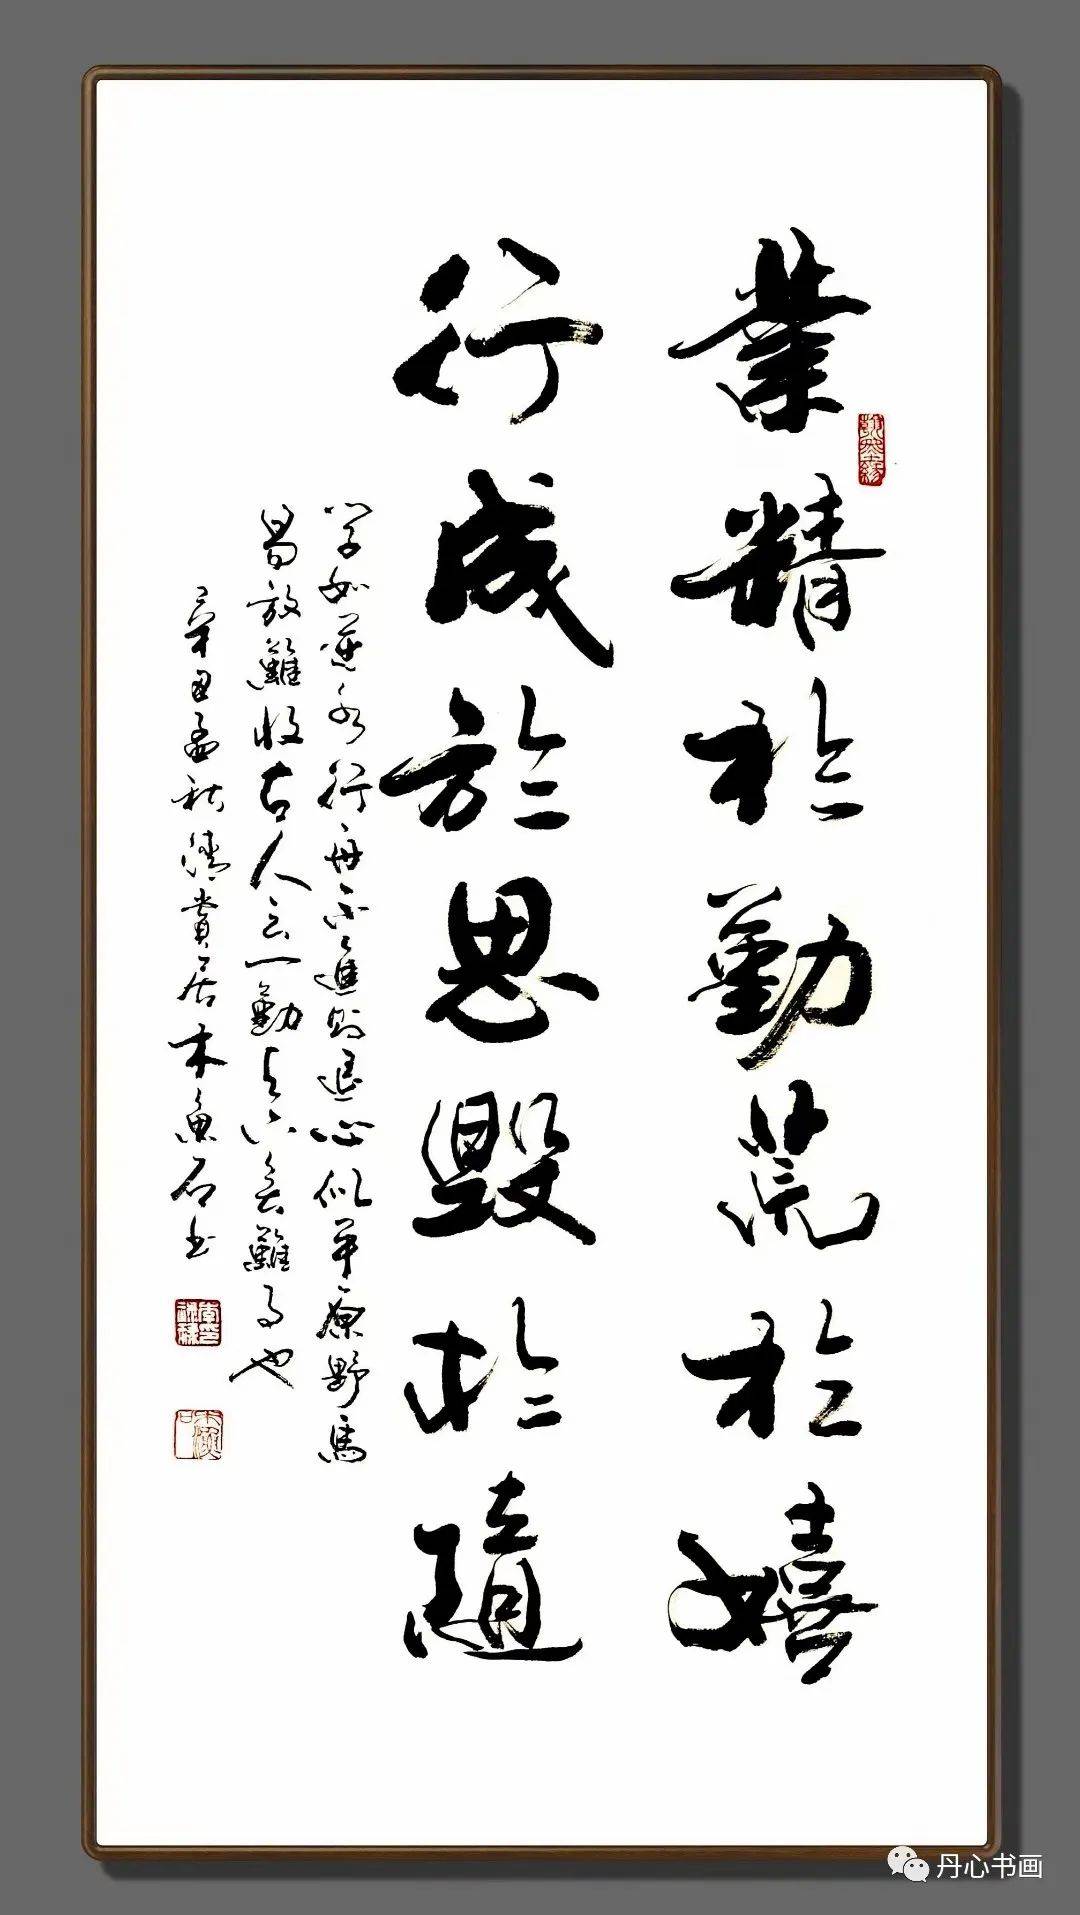 業精於勤荒於嬉
行成於思毀於隨
學如逆水行舟不進則退心似平原野馬
易放難收古人云一勤天下無難事也
辛丑孟秋清賞居木魚石書
丹心书画